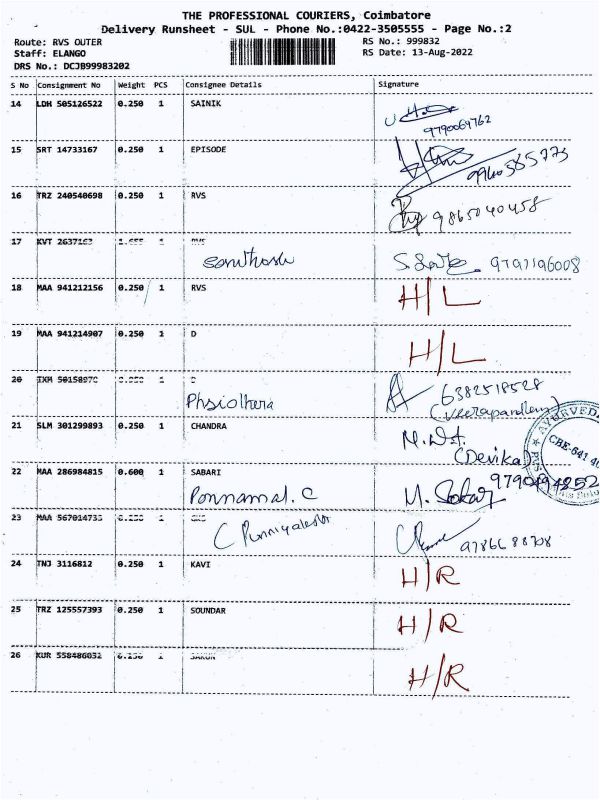 THE PROFESSIONAL COURIERS, Coimbatore
Delivery Runsheet - SUL - Phone No.:0422-3505555 - Page No.:2
Route: RVS OUTER
RS No.: 999832
Staff: ELANGO
RS Date: 13-Aug-2022
DRS No.: DCJB99983202
S No Consignment No Weight PCS Consignee Details Signature
14 LDH 505126522 0.250 1 SAINIK
9790069762
15 SRT 14733167 0.250 1 EPISODE
9940585773
16 TRZ 240540698 0.250 1 RVS
9865040458
17 KVT 2637163 1 RVS
Santhosh 9797196008
18 MAA 941212156 0.250 1 RVS H/L
19 MAA 941214907 0.250 1 D H/L
20 1 D
6382518528
21 SLM 301299893 0.250 1 CHANDRA
(Devika)
AYURVEDA
CBE-641 40
22 MAA 286984815 0.600 1 SABARI
9790494252
Ponnamal. C
23 MAA 567014735 1
9786688708
24 TNJ 3116812 0.250 1 KAVI H/R
25 TRZ 125557393 0.250 1 SOUNDAR H/R
26 KUR 558486032 1 H/R